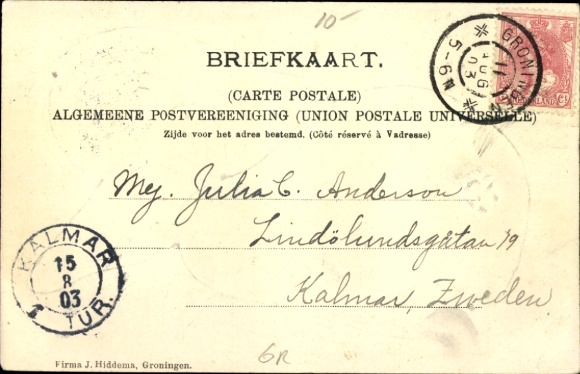 10-
BRIEFKAART.
(CARTE POSTALE)
ALGEMEENE POSTVEREENIGING (UNION POSTALE UNIVERSELLE)
Zijde voor het adres bestemd. (Côté réservé à l'adresse)
GRONINGEN
11 AUG 03
5-6N
Mej. Julia C. Anderson
Lindölundsgatan 19
Kalmar, Zweden.
KALMAR
15
8
03
1 TUR.
6R
Firma J. Hiddema, Groningen.